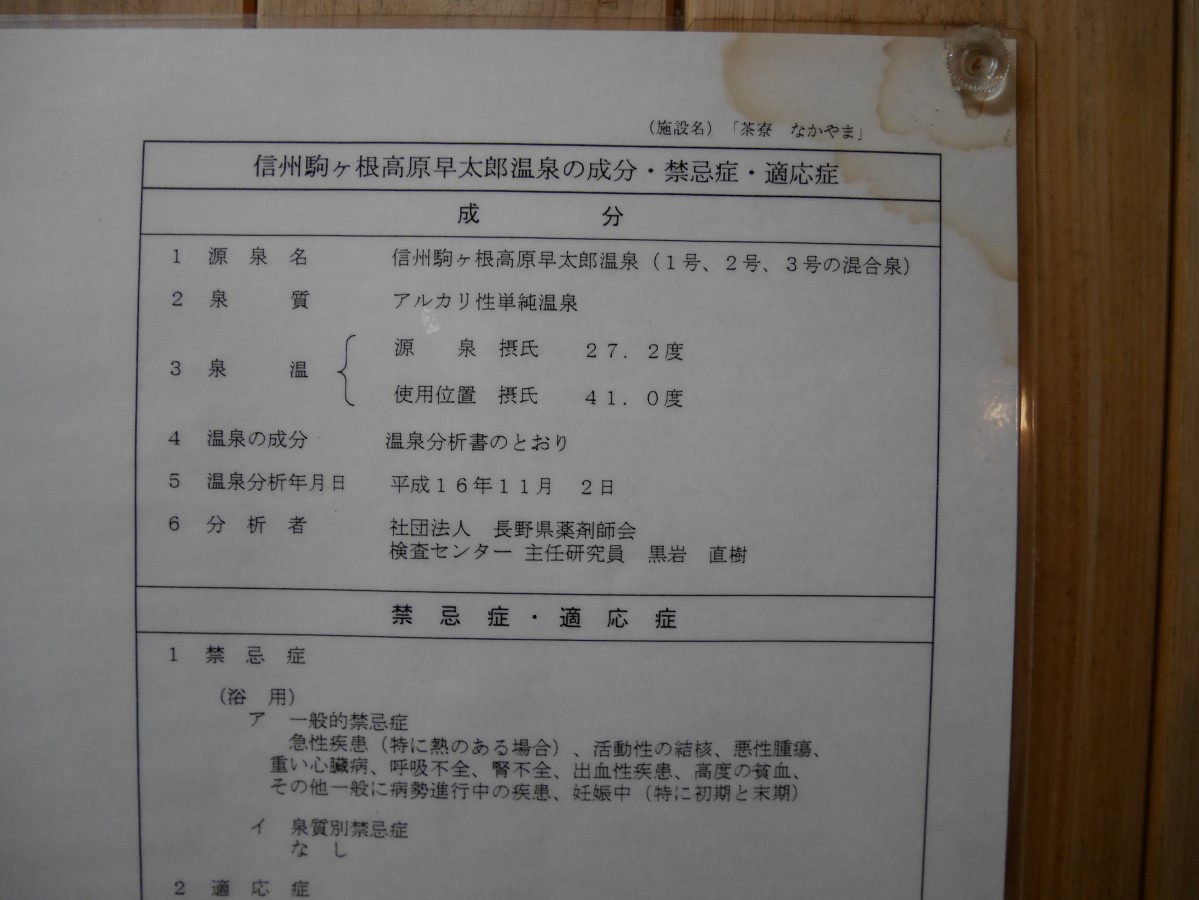 （施設名）「茶寮　なかやま」
信州駒ヶ根高原早太郎温泉の成分・禁忌症・適応症
成　　　分
１　源　泉　名　　　信州駒ヶ根高原早太郎温泉（１号、２号、３号の混合泉）
２　泉　　　質　　　アルカリ性単純温泉
３　泉　　　温　　　源　　泉　摂氏　　２７．２度
使用位置　摂氏　　４１．０度
４　温泉の成分　　　温泉分析書のとおり
５　温泉分析年月日　　平成１６年１１月　２日
６　分　析　者　　　社団法人　長野県薬剤師会
検査センター　主任研究員　黒岩　直樹
禁　忌　症　・　適　応　症
１　禁　忌　症
（浴　用）
ア　一般的禁忌症
急性疾患（特に熱のある場合）、活動性の結核、悪性腫瘍、
重い心臓病、呼吸不全、腎不全、出血性疾患、高度の貧血、
その他一般に病勢進行中の疾患、妊娠中（特に初期と末期）
イ　泉質別禁忌症
な　し
２　適　応　症